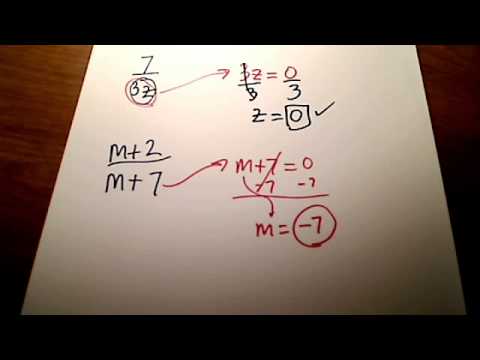 7/3z → 3z/3 = 0/3
z = 0 ✓
m+2/m+7 → m+7 = 0
-7 -7
m = -7